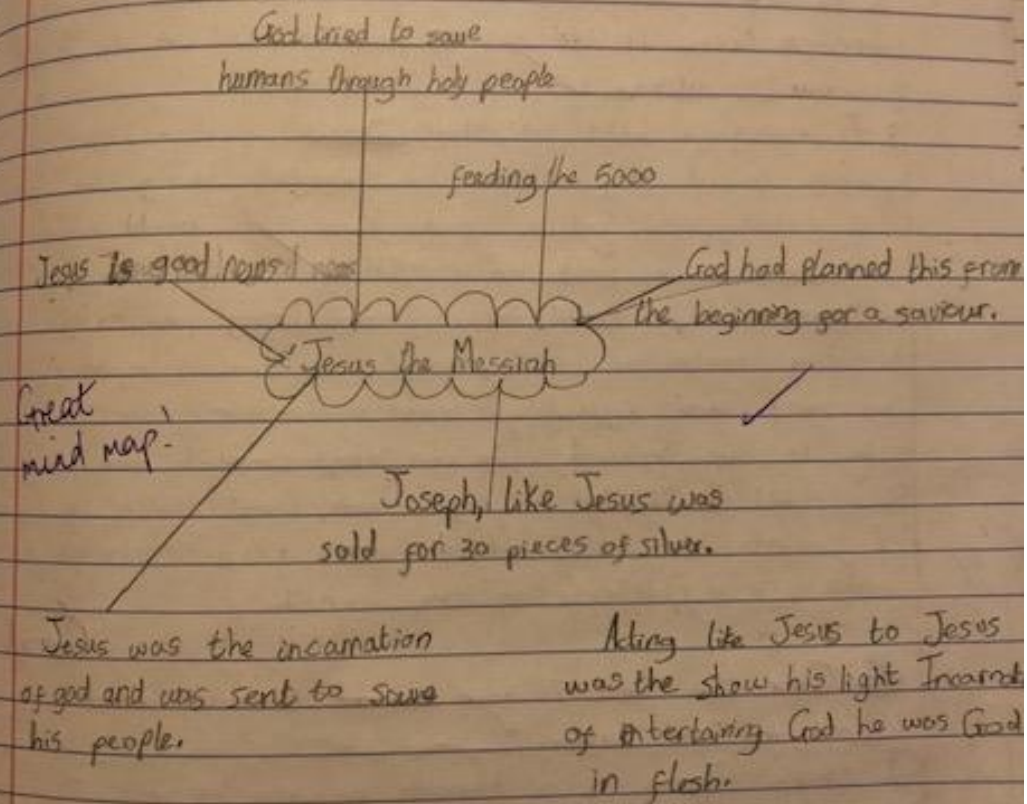 God tried to save
humans through holy people
feeding the 5000
Jesus is good news
God had planned this from
the beginning for a saviour.
Jesus the Messiah
Great
mind map!
Joseph, like Jesus was
sold for 30 pieces of silver.
Jesus was the incarnation
of god and was sent to save
his people.
Acting like Jesus to Jesus
was the show his light Incarnat
of entertaining God he was God
in flesh.